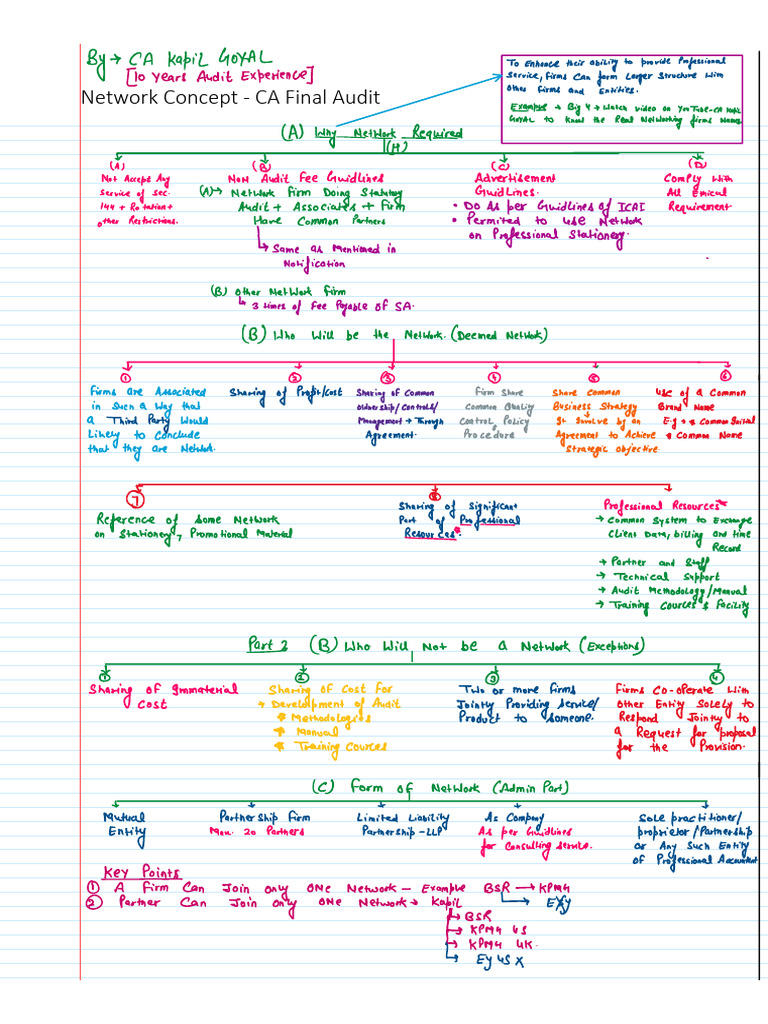 By → CA Kapil GOYAL
[10 Years Audit Experience]
Network Concept - CA Final Audit
To Enhance their ability to provide Professional
Service, Firms Can form Larger Structure with
Other Firms and Entities.
Example → Big 4 → Watch video on YouTube - CA Kapil
GOYAL to know the Real Networking firms Names
(A) Why Network Required
(H)
(A)
Not Accept Any
Service of Sec.
144 + Rotation +
other Restrictions.
(B)
Non Audit Fee Guidlines
(A) → Network Firm Doing Statutory
Audit + Associates + Firm
Have Common Partners
→ Same as Mentioned in
Notification
(B) Other Network Firm
↳ 3 times of Fee Payable of SA.
(C)
Advertisement
Guidlines.
• Do As per Guidlines of ICAI
• Permited to use Network
on Professional Stationery.
(D)
Comply with
All Ethical
Requirement
(B) Who Will be the Network. (Deemed Network)
①
Firms are Associated
in Such a Way that
a Third Party Would
Likely to Conclude
that they are Network.
②
Sharing of Profit/Cost
③
Sharing of Common
Ownership/Controls/
Management → Through
Agreement.
④
Firm Share
Common Quality
Control Policy
& Procedure
⑤
Share Common
Business Strategy
It Involve by an
Agreement to Achieve
Strategic Objective.
⑥
Use of a Common
Brand Name
E.g → * Common Initial
* Common Name
⑦
Reference of Some Network
on Stationery, Promotional Material
⑧
Sharing of Significant
Part of Professional
Resources*
Professional Resources*
→ Common System to Exchange
Client Data, billing and time
Record
→ Partner and Staff
→ Technical Support
→ Audit Methodology/Manual
→ Training Courses & Facility
Part 2 (B) Who Will Not be a Network (Exceptions)
①
Sharing of Immaterial
Cost
②
Sharing of Cost for
→ Development of Audit
* Methodologies
* Manual
* Training Cources
③
Two or more Firms
Jointly Providing Service/
Product to Someone.
④
Firms Co-operate With
Other Entity Solely to
Respond Jointy to
a Request for proposal
for the Provision.
(C) Form of Network (Admin Part)
Mutual
Entity
Partnership Firm
Max. 20 Partners
Limited Liability
Partnership - LLP
As Company
As per Guidlines
for Consulting Service.
Sole practitioner/
proprietor/Partnership
or Any Such Entity
of Professional Accountant
Key Points
① A Firm Can Join only ONE Network - Example BSR → KPMG
→ EY
② Partner Can Join only ONE Network → Kapil
→ BSR
→ KPMG US
→ KPMG UK.
→ Ey US X